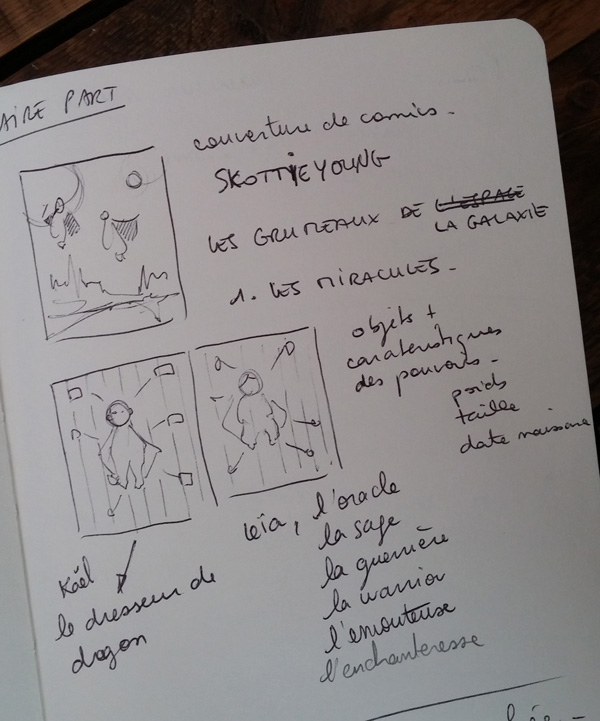 AIRE PART
couverture de comics.
SKOTTIE YOUNG
LES GRUMEAUX DE L'ESPACE
LA GALAXIE
1. LES MIRACULES.
objets +
caratéristiques
des pouvoirs.
poids
taille
date naissance
Kaël
le dresseur de
dragon
Leïa, l'oracle
la sage
la guerrière
la warrior
l'envouteuse
l'enchanteresse